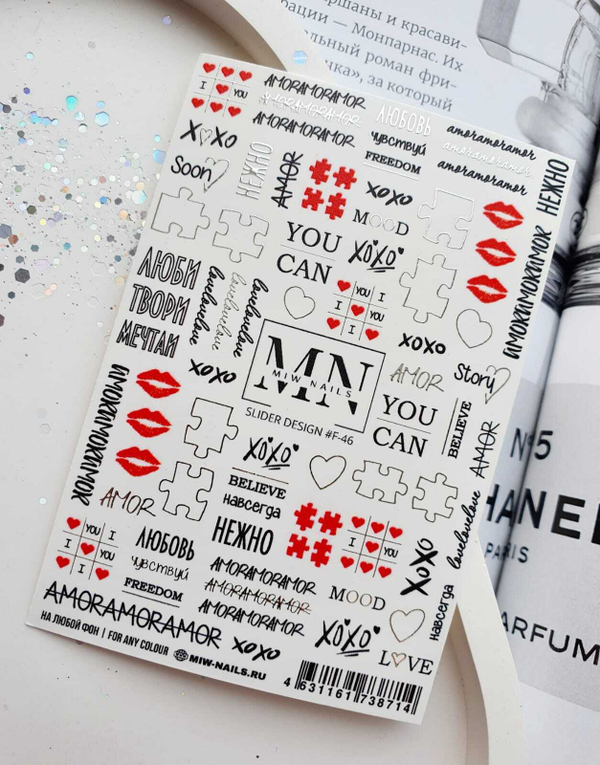 ршаны и красави-
рации — Монпарнас. Их
льный роман фри-
нка», за который
AMORAMORAMOR
AMORAMORAMOR
AMORAMORAMOR
I YOU
ЛЮБОВЬ
чувствуй
FREEDOM
amoramoramor
amoramoramor
amoramoramor
НЕЖНО
XOXO
Soon
НЕЖНО
AMOR
XOXO
MOOD
YOU
CAN
XOXO
YOU I
I YOU
I
ЛЮБИ
ТВОРИ
МЕЧТАЙ
lovelovelove
lovelovelove
lovelovelove
XOXO
AMOR
Story
MN
MIW NAILS
SLIDER DESIGN #F-46
YOU
CAN
BELIEVE
AMOR
XOXO
BELIEVE
навсегда
AMOR
YOU I
I YOU
I
ЛЮБОВЬ
чувствуй
FREEDOM
НЕЖНО
AMORAMORAMOR
AMORAMORAMOR
AMORAMORAMOR
I YOU
MOOD
XOXO
lovelovelove
XOXO
навсегда
AMORAMORAMOR
XOXO
LOVE
НА ЛЮБОЙ ФОН | FOR ANY COLOUR
MIW-NAILS.RU
4 631161 738714
N°5
HANEL
PARIS
PARFUM